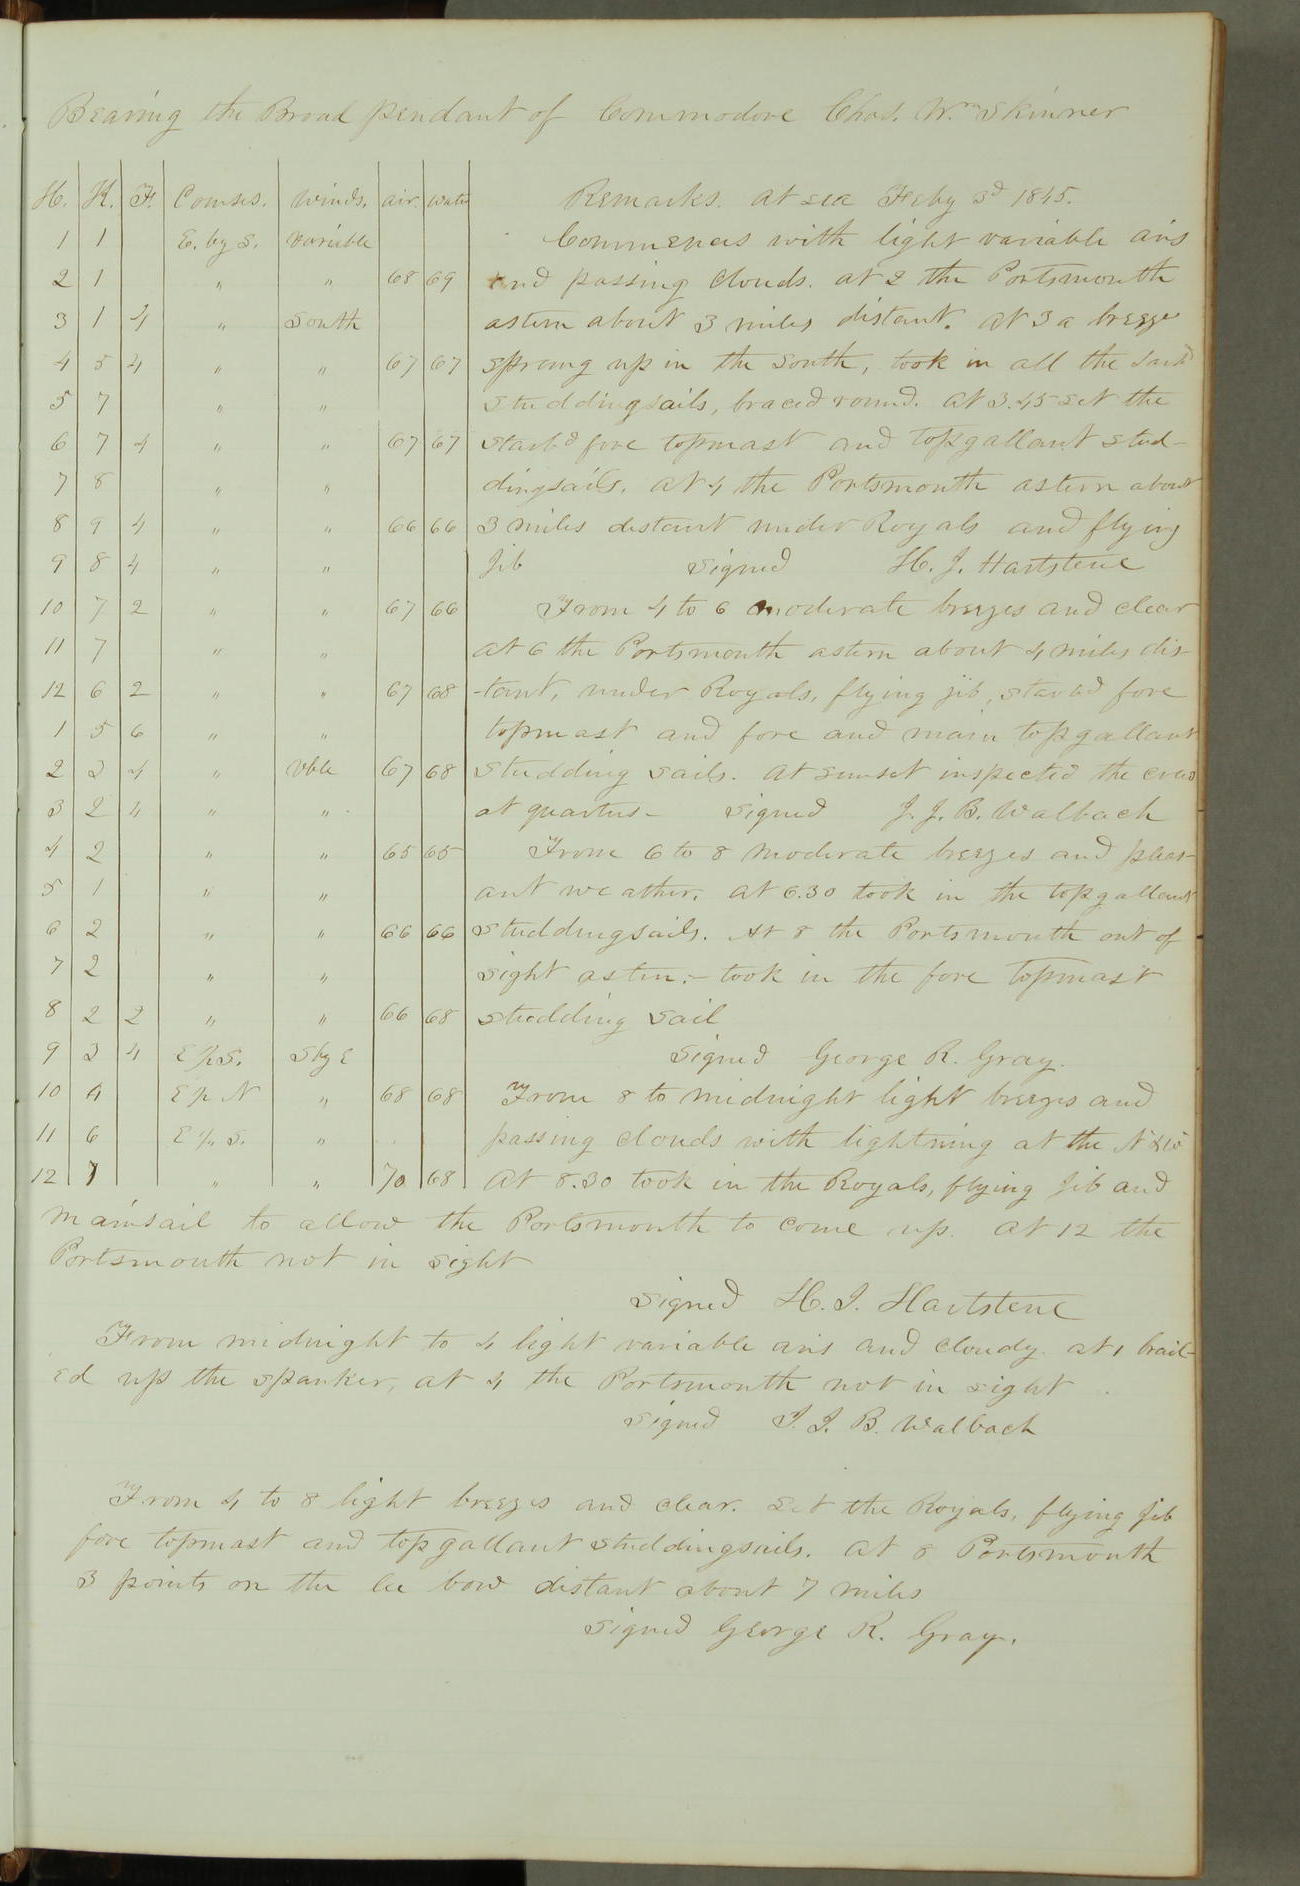 Bearing the Broad pendant of Commodore Chas. Wm Skinner
H. K. F. Courses. Winds. air. water Remarks. at sea Feby 3d 1845.
1 1 E. by S. Variable Commences with light variable airs
2 1 " " 68 69 and passing clouds. at 2 the Portsmouth
3 1 4 " South astern about 3 miles distant. At 3 a breeze
4 5 4 " " 67 67 sprang up in the South, took in all the Larbd
5 7 " " Studdingsails, braced round. At 3.45 set the
6 7 4 " " 67 67 Starbd fore topmast and topgallant stud-
7 8 " " dingsails. At 4 the Portsmouth astern about
8 9 4 " " 66 66 3 miles distant under Royals and flying
9 8 4 " " Jib Signed H. J. Hartstene
10 7 2 " " 67 66 From 4 to 6 moderate breezes and clear
11 7 " " at 6 the Portsmouth astern about 4 miles dis-
12 6 2 " " 67 68 -tant, under Royals, flying jib, starbd fore
1 5 6 " " topmast and fore and main topgallant
2 3 4 " Vble 67 68 Studding sails. At sunset inspected the crew
3 2 4 " " at quarters - Signed J. J. B. Walbach
4 2 " " 65 65 From 6 to 8 moderate breezes and pleas-
5 1 " " ant weather. At 6.30 took in the topgallant
6 2 " " 66 66 Studdingsails. At 8 the Portsmouth out of
7 2 " " sight astern:- took in the fore topmast
8 2 2 " " 66 68 studding sail
9 3 4 E ½ S. S by E Signed George R. Gray.
10 4 E ½ N " 68 68 From 8 to midnight light breezes and
11 6 E ½ S. " passing clouds with lightning at the Nd & Wd
12 7 " " 70 68 At 8.30 took in the Royals, flying Jib and
mainsail to allow the Portsmouth to come up. At 12 the
Portsmouth not in sight
Signed H. J. Hartstene
From midnight to 4 light variable airs and cloudy. at 1 brail-
ed up the spanker, at 4 the Portsmouth not in sight
Signed J. J. B. Walbach
From 4 to 8 light breezes and clear. Set the Royals, flying Jib
fore topmast and topgallant studdingsails. At 8 Portsmouth
3 points on the lee bow distant about 7 miles
Signed George R. Gray.